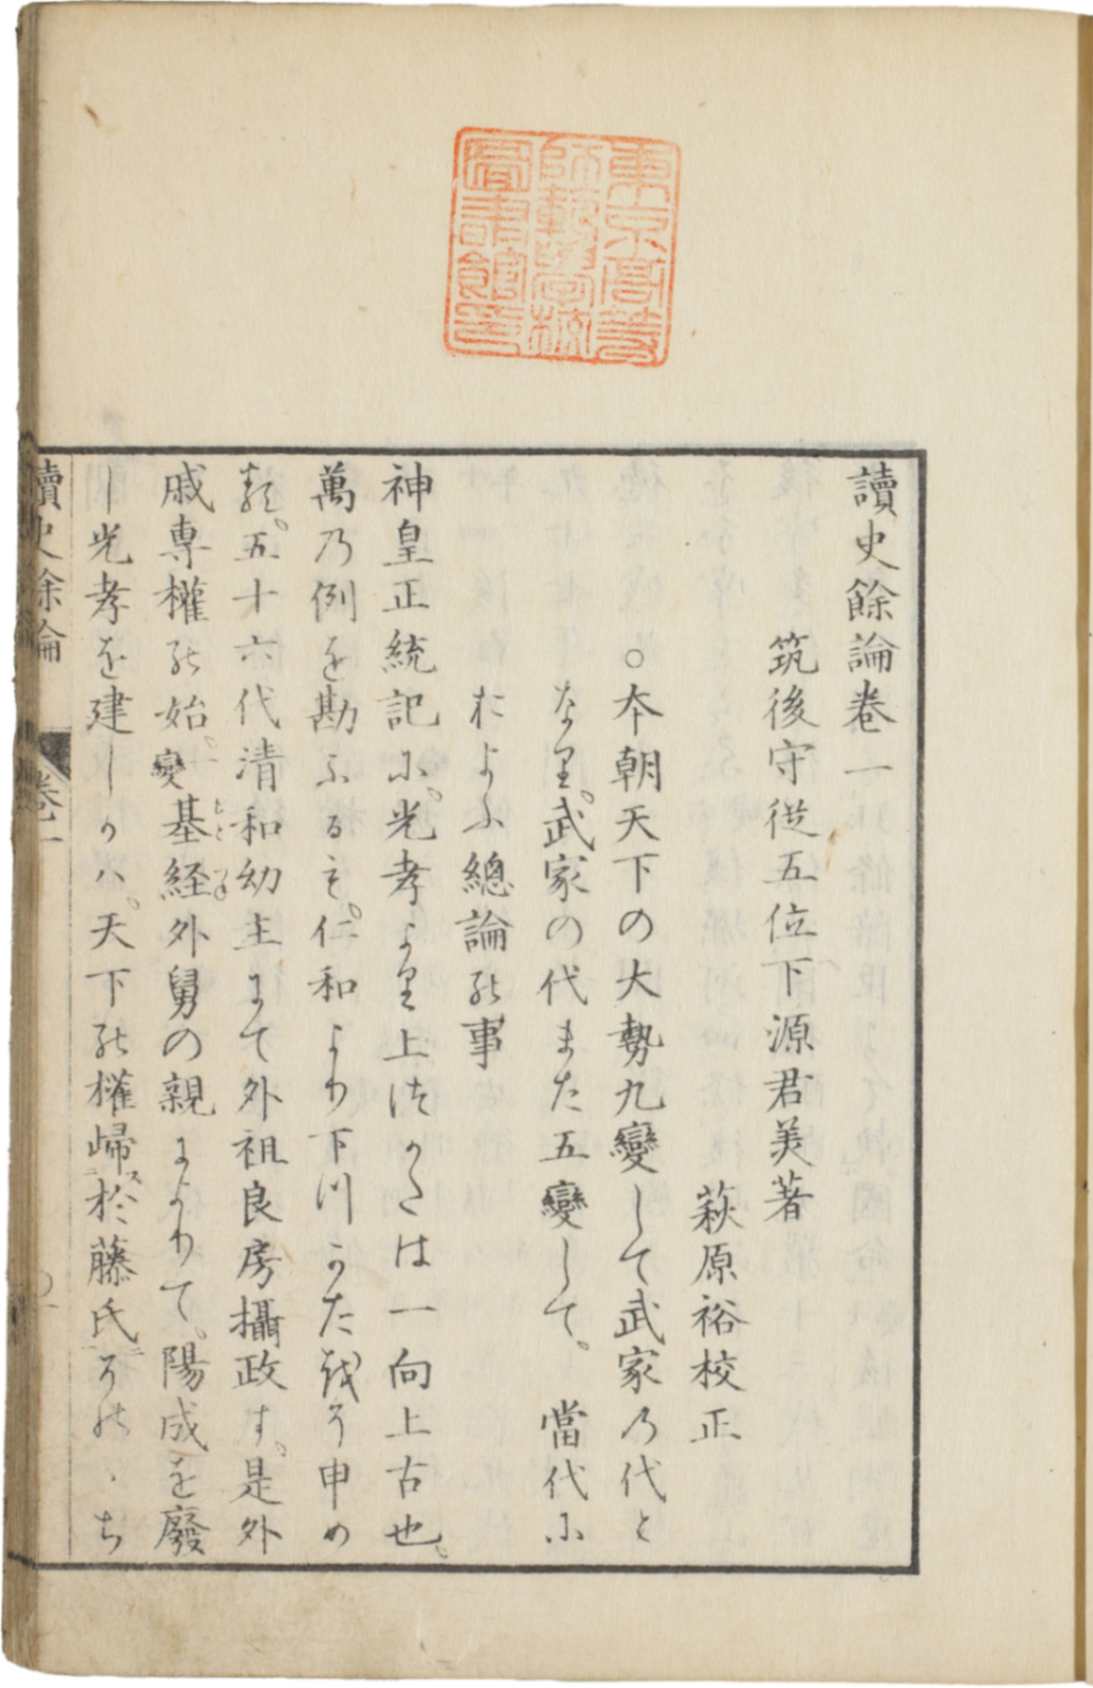 東京高等
師範學校
圖書館印
讀史餘論卷一
筑後守從五位下源君美著
萩原裕校正
○本朝天下の大勢九變して武家の代と
なり。武家の代また五變して。當代に
およふ總論の事
神皇正統記に。光孝より上つかたは一向上古也。
萬の例を勘ふるも。仁和より下つかたをそ申め
る。五十六代清和幼主にて外祖良房攝政す。是外
戚専權の始。變基経外舅の親によりて。陽成を廢
もとつね
し光孝を建しかハ。天下の權歸ス於藤氏ニそのゝち
讀史餘論 卷一